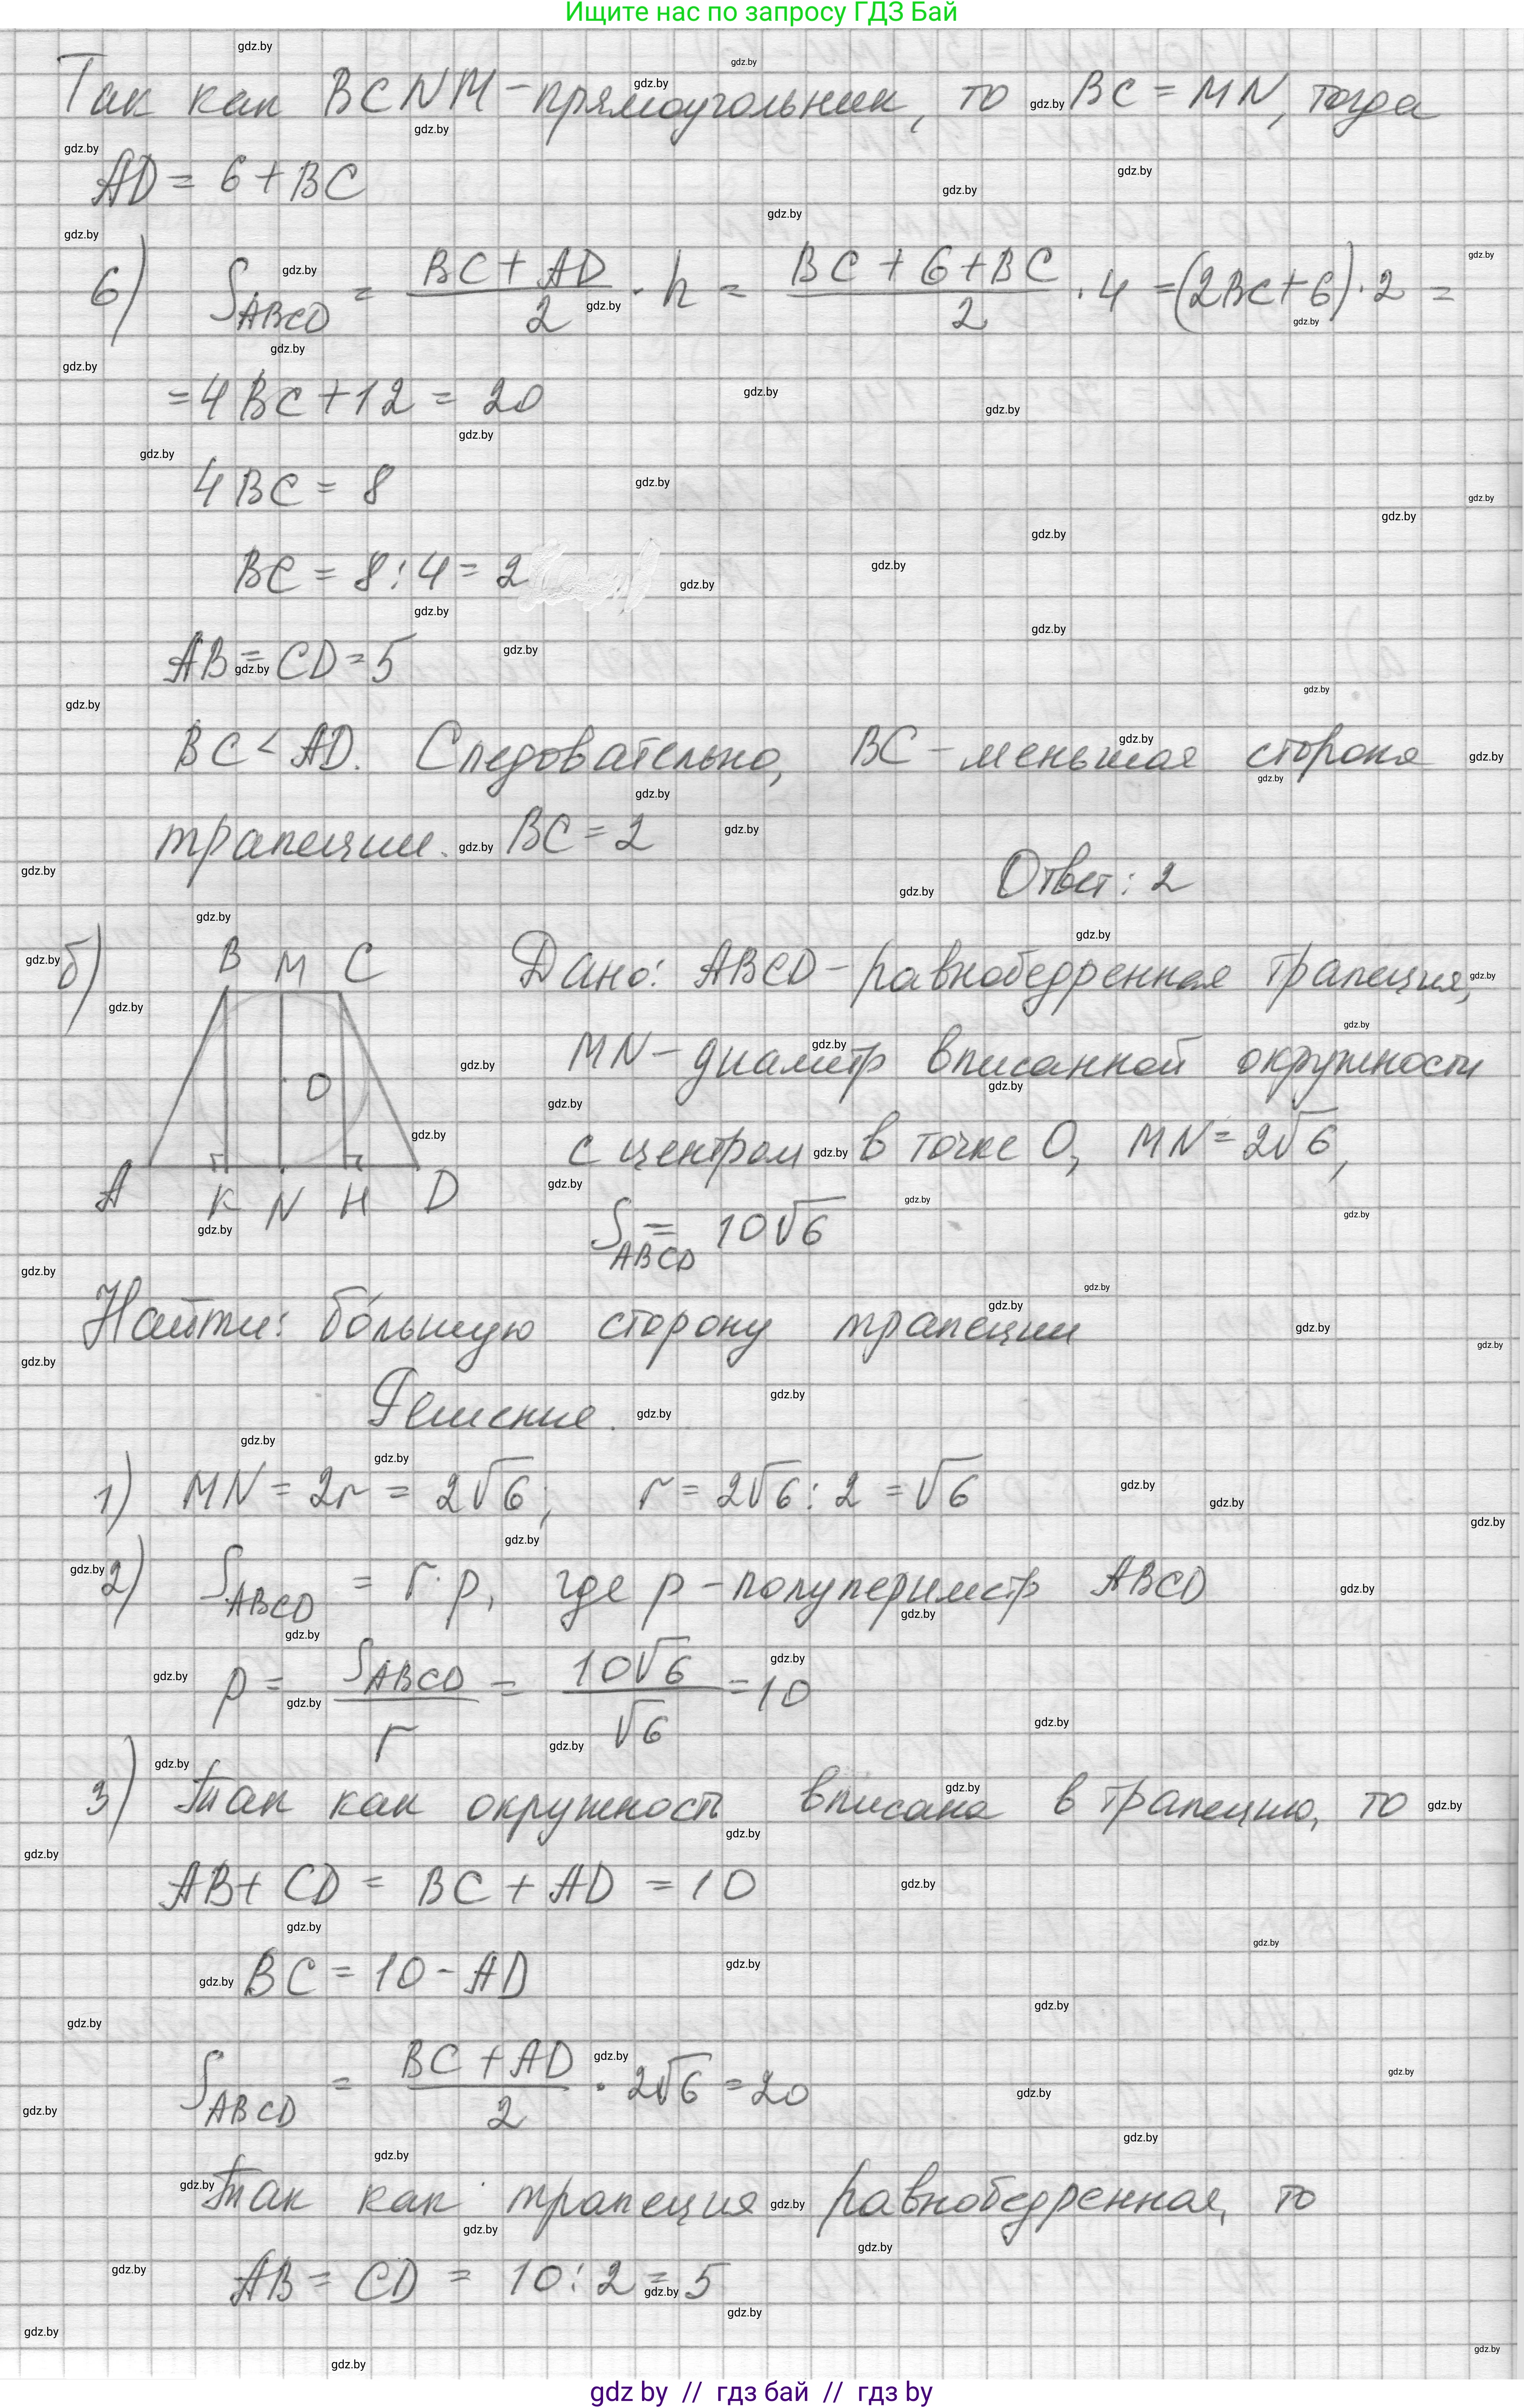 Ищите нас по запросу ГДЗ Бай
Так как BCNM - прямоугольник, то BC = MN, тогда
AD = 6 + BC
6) S_ABCD = (BC + AD)/2 · h = (BC + 6 + BC)/2 · 4 = (2BC + 6) · 2 =
= 4BC + 12 = 20
4BC = 8
BC = 8 : 4 = 2
AB = CD = 5
BC < AD. Следовательно, BC - меньшая сторона
трапеции. BC = 2
Ответ: 2
б) B M C
O
A K N H D
Дано: ABCD - равнобедренная трапеция,
MN - диаметр вписанной окружности
с центром в точке O, MN = 2√6,
S_ABCD = 10√6
Найти: бо́льшую сторону трапеции
Решение.
1) MN = 2r = 2√6; r = 2√6 : 2 = √6
2) S_ABCD = r · p, где p - полупериметр ABCD
p = S_ABCD/r = 10√6/√6 = 10
3) Так как окружность вписана в трапецию, то
AB + CD = BC + AD = 10
BC = 10 - AD
S_ABCD = (BC + AD)/2 · 2√6 = 20
Так как трапеция равнобедренная, то
AB = CD = 10 : 2 = 5
gdz by // гдз бай // гдз by